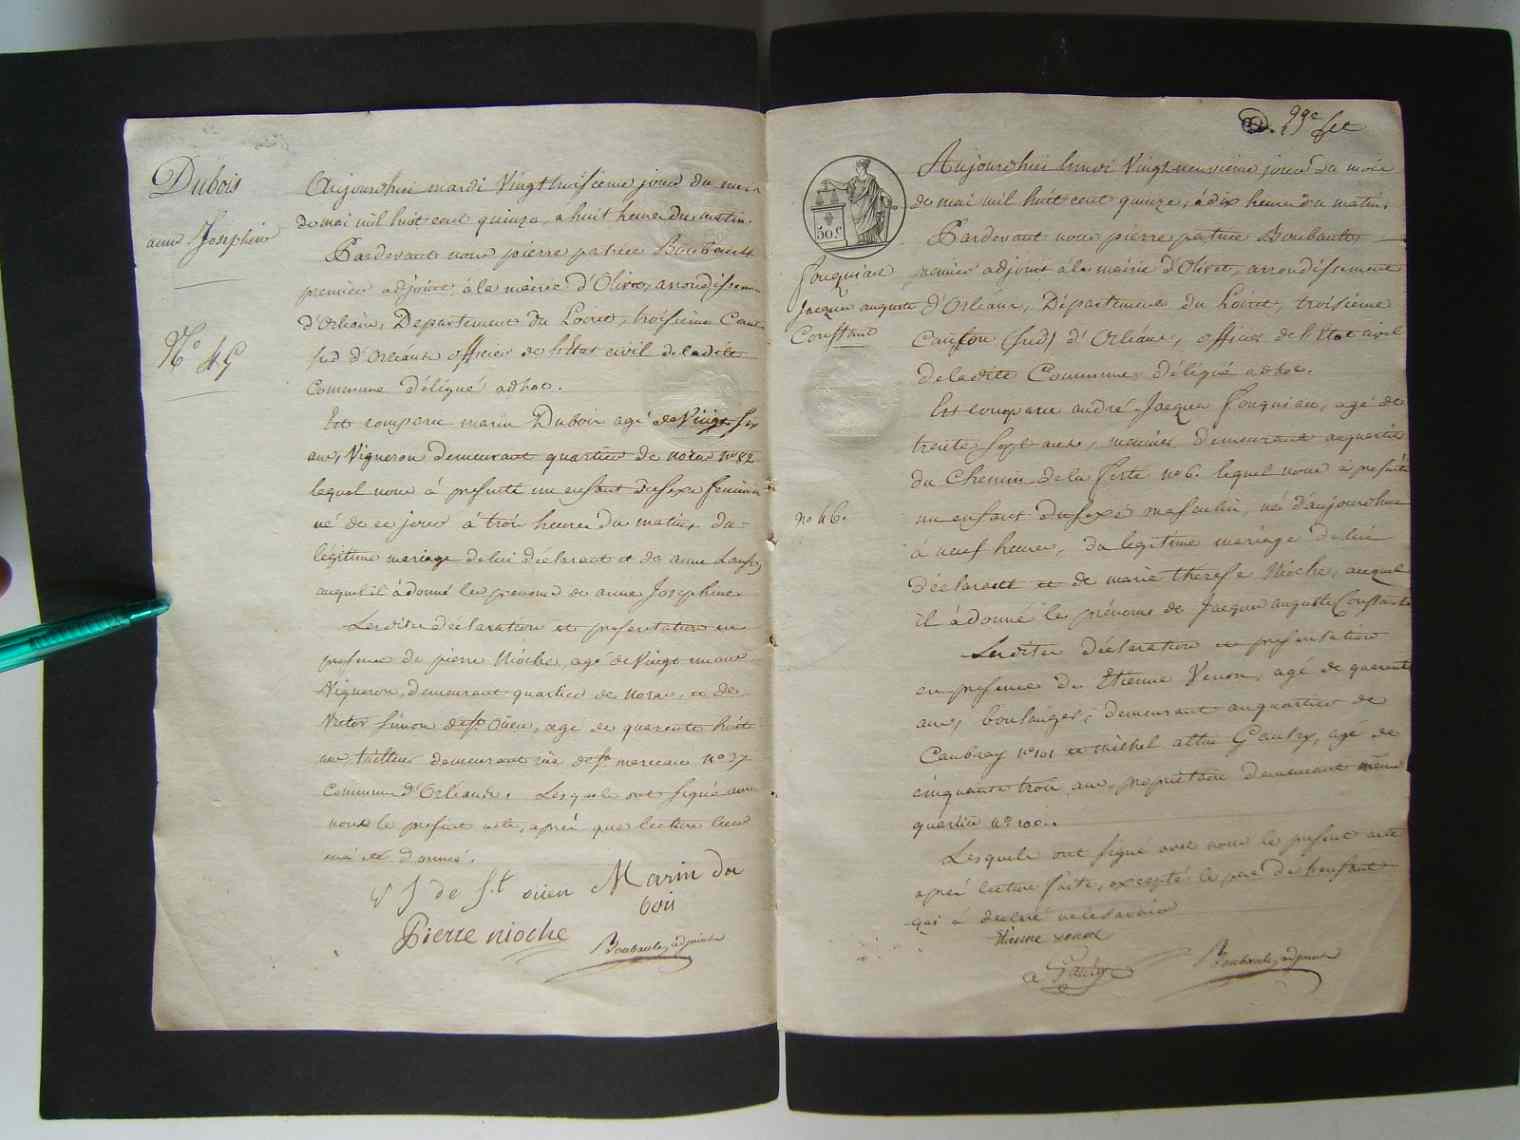 Dubois
anne Josephine
N° 45
Aujourdhui mardi Vingt troisieme jour du mois
de mai mil huit cent quinze, a huit heures du matin.
Pardevant nous pierre patrice Boubault
premier adjoint à la mairie d'Olivet, arrondissement
d'Orléans, Departement du Loiret, troisieme Canton
sud d'Orléans officier de l'Etat civil de ladite
Commune délégué adhoc.
Est comparu marin Dubois agé de Vingt six
ans, Vigneron demeurant quartier de noras n° 82
lequel nous à presenté un enfant du sexe feminin
né de ce jour à trois heures du matin, du
légitime mariage de lui déclarant et de anne
auquel il à donné les prenoms de anne Josephine
Lesdites déclaration et presentation en
presence de pierre Nioche, agé de Vingt un ans
Vigneron, demeurant quartier de noras, et de
Victor Simon de St Oüen, agé de quarente huit
ans tailleur demeurant rüe de st marceau n° 37
commune d'Orléans. Lesquels ont signé avec
nous le present acte, après que lecture leur
en à été donné.
V S de S.t oüen Marin du
bois
Pierre nioche
Boubault, adjoint
99e
50 c
Fouquiau
Jacques auguste
Constant
no 46.
Aujourdhui lundi Vingt neuvieme jour du mois
de mai mil huit cent quinze, à dix heures du matin.
Pardevant nous pierre patrice Boubault
premier adjoint à la mairie d'Olivet, arrondissement
d'Orléans, Département du Loiret, troisieme
Canton (sud) d'Orléans, officier de l'Etat civil
de ladite Commune, délégué adhoc.
Est comparu andré Jacques Fouquiau, agé de
trente sept ans, meunier, demeurant au quartier
du Chemin de la Ferté no 6. lequel nous à presenté
un enfant du sexe masculin, né d'aujourdhui
à neuf heures, du legitime mariage de lui
déclarant et de marie therese Nioche, auquel
il à donné les prénoms de Jacques auguste Constant
Lesdites déclaration et presentation
en presence de Etienne Venon, agé de quarente
ans, boulanger, demeurant au quartier de
Caubray n° 101 et michel Gaudry, agé de
cinquante trois ans, propriétaire demeurant même
quartier n° 100.
Lesquels ont signé avec nous le present acte
aprés lecture faite, excepté le pere de l'enfant
qui à declaré ne le savoir
Etienne venon
Gaudry
Boubault, adjoint